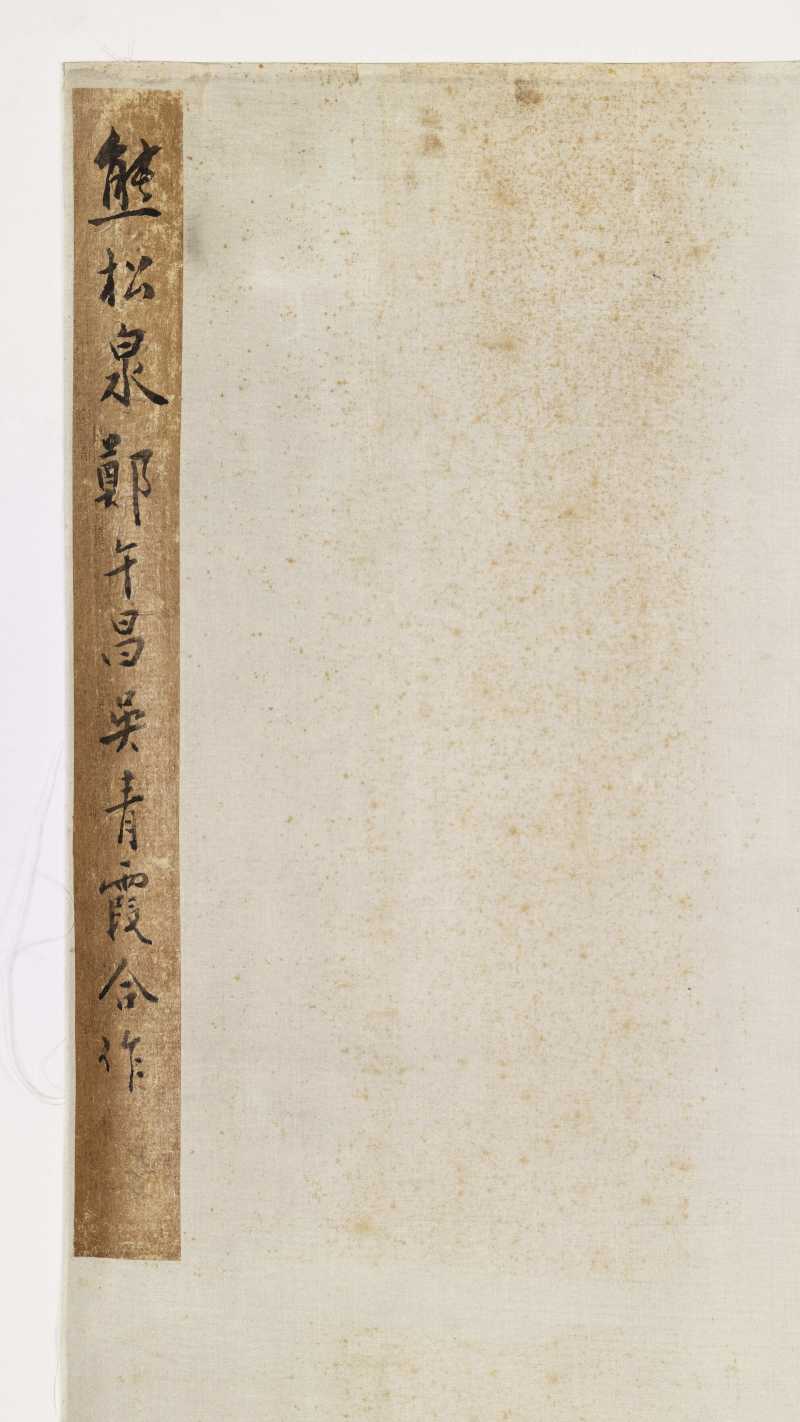 熊松泉鄭午昌吳青霞合作